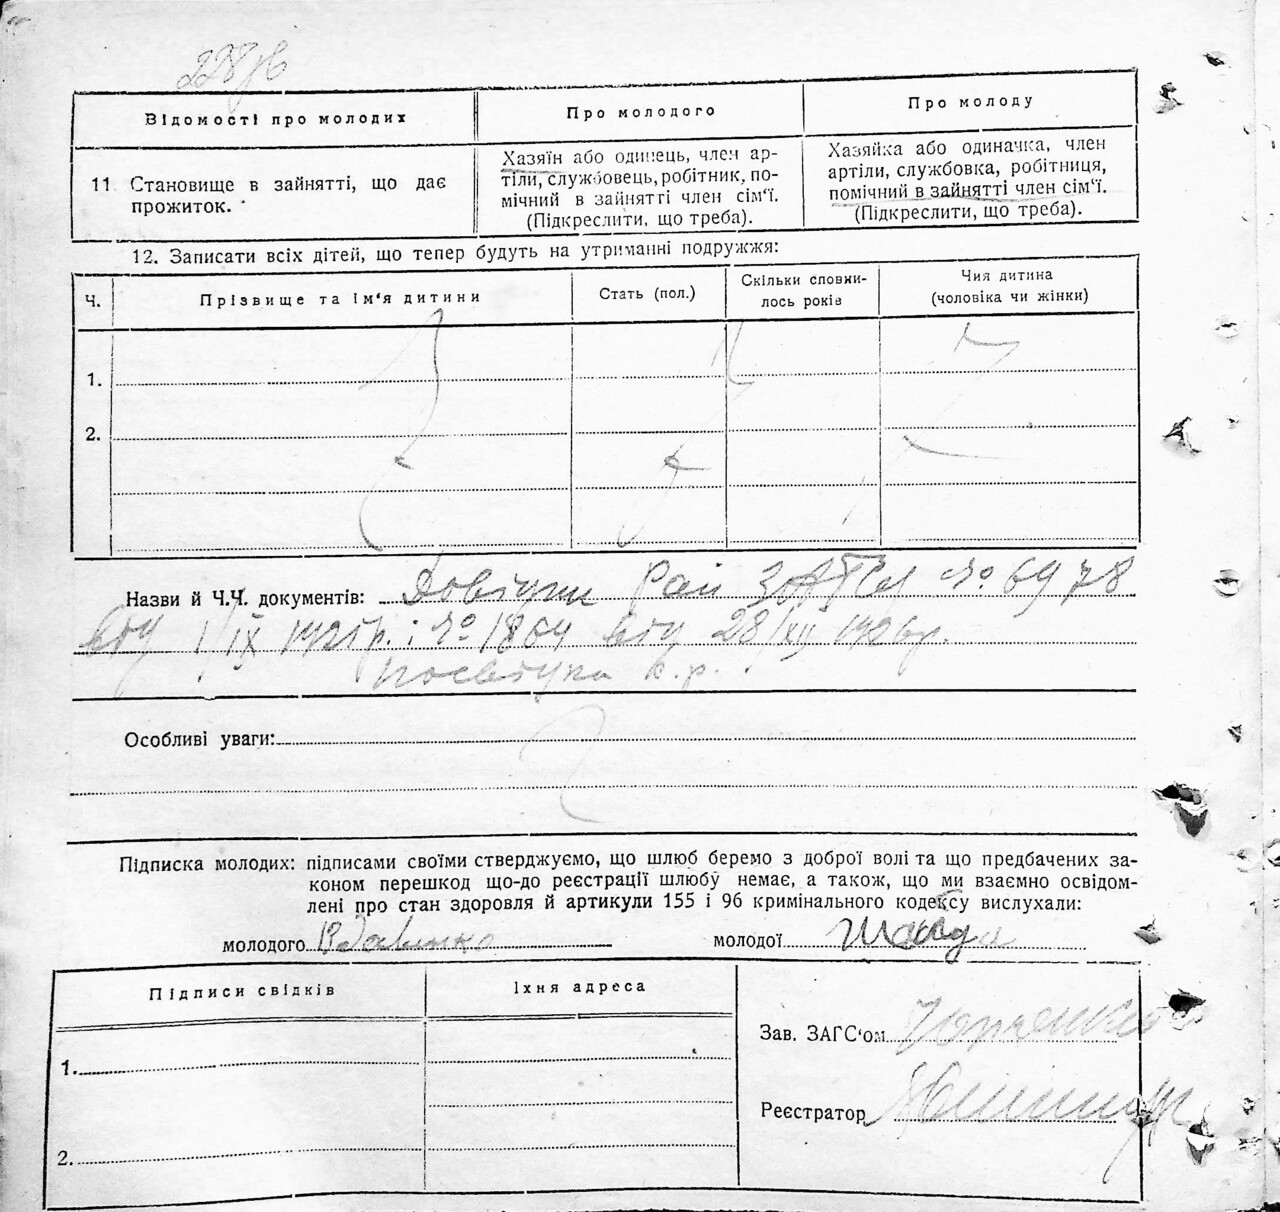 Відомості про молодих
Про молодого
Про молоду
11 Становище в зайнятті, що дає
прожиток.
Хазяїн або одинець, член ар-
тіли, службовець, робітник, по-
мічний в зайнятті член сім'ї.
(Підкреслити, що треба).
Хазяйка або одиначка, член
артіли, службовка, робітниця,
помічний в зайнятті член сім'ї.
(Підкреслити, що треба).
12. Записати всіх дітей, що тепер будуть на утриманні подружжя:
Ч.
Прізвище та ім'я дитини
Стать (пол.)
Скільки сповни-
лось років
Чия дитина
(чоловіка чи жінки)
1.
2.
Назви й Ч.Ч. документів: Довідки Рай ЗАГСА № 6978
від 1/IX і № 1864 від 28/XII 1926р.
Особливі уваги:
Підписка молодих: підписами своїми стверджуємо, що шлюб беремо з доброї волі та що предбачених за-
коном перешкод що-до реєстрації шлюбу немає, а також, що ми взаємно освідом-
лені про стан здоровля й артикули 155 і 96 кримінального кодексу вислухали:
молодого
молодої
Підписи свідків
Їхня адреса
1.
2.
Зав. ЗАГС'ом
Реєстратор